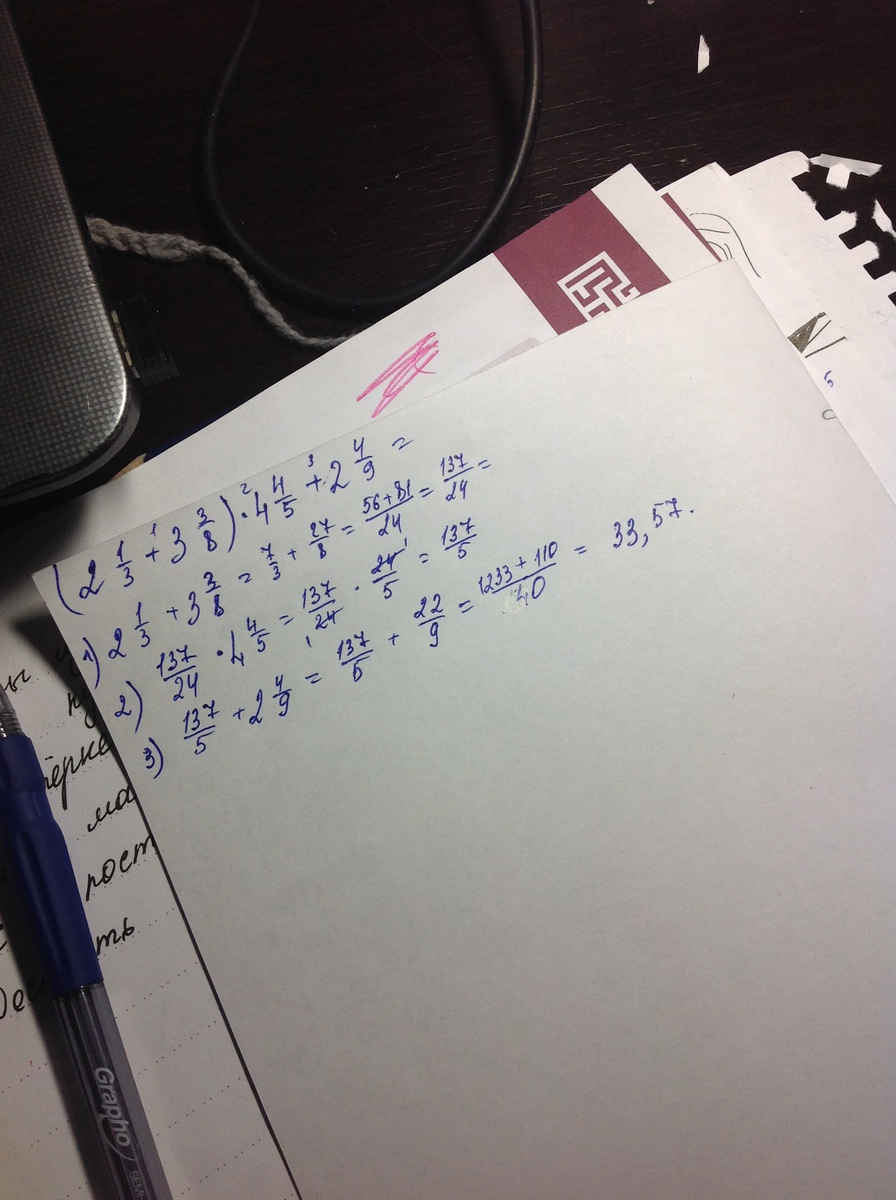 (2 1/3 + 3 3/8) · 4 4/5 + 2 4/9 =
1) 2 1/3 + 3 3/8 = 7/3 + 27/8 = 56+81/24 = 137/24 =
2) 137/24 · 4 4/5 = 137/24 · 24/5 = 137/5
3) 137/5 + 2 4/9 = 137/5 + 22/9 = 1233+110/40 = 33,57.
мa
рост
ть
Grapho